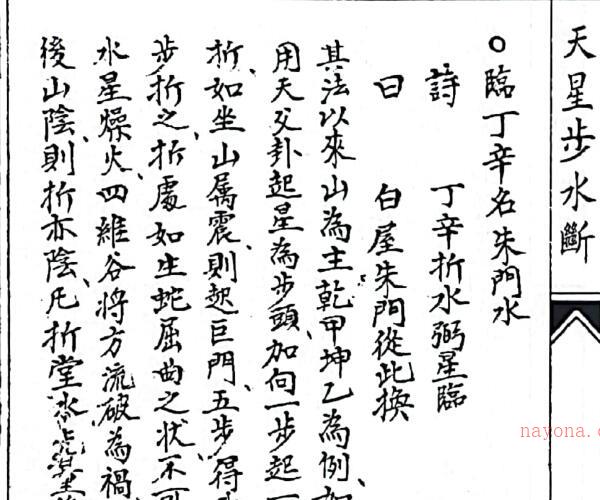 天星步水斷
○臨丁辛名朱門水
詩 丁辛折水弼星臨
曰 白屋朱門從此換
其法以來山為主乾甲坤乙為例、如
用天父卦起星為步頭、加向一步起一
折、如坐山屬震、則起巨門、五步、得
步折之、折處如生蛇屈曲之狀、不可
水星燥火、四維谷將方流破為禍
後山陰、則折亦陰、凡折堂水
nayona.c